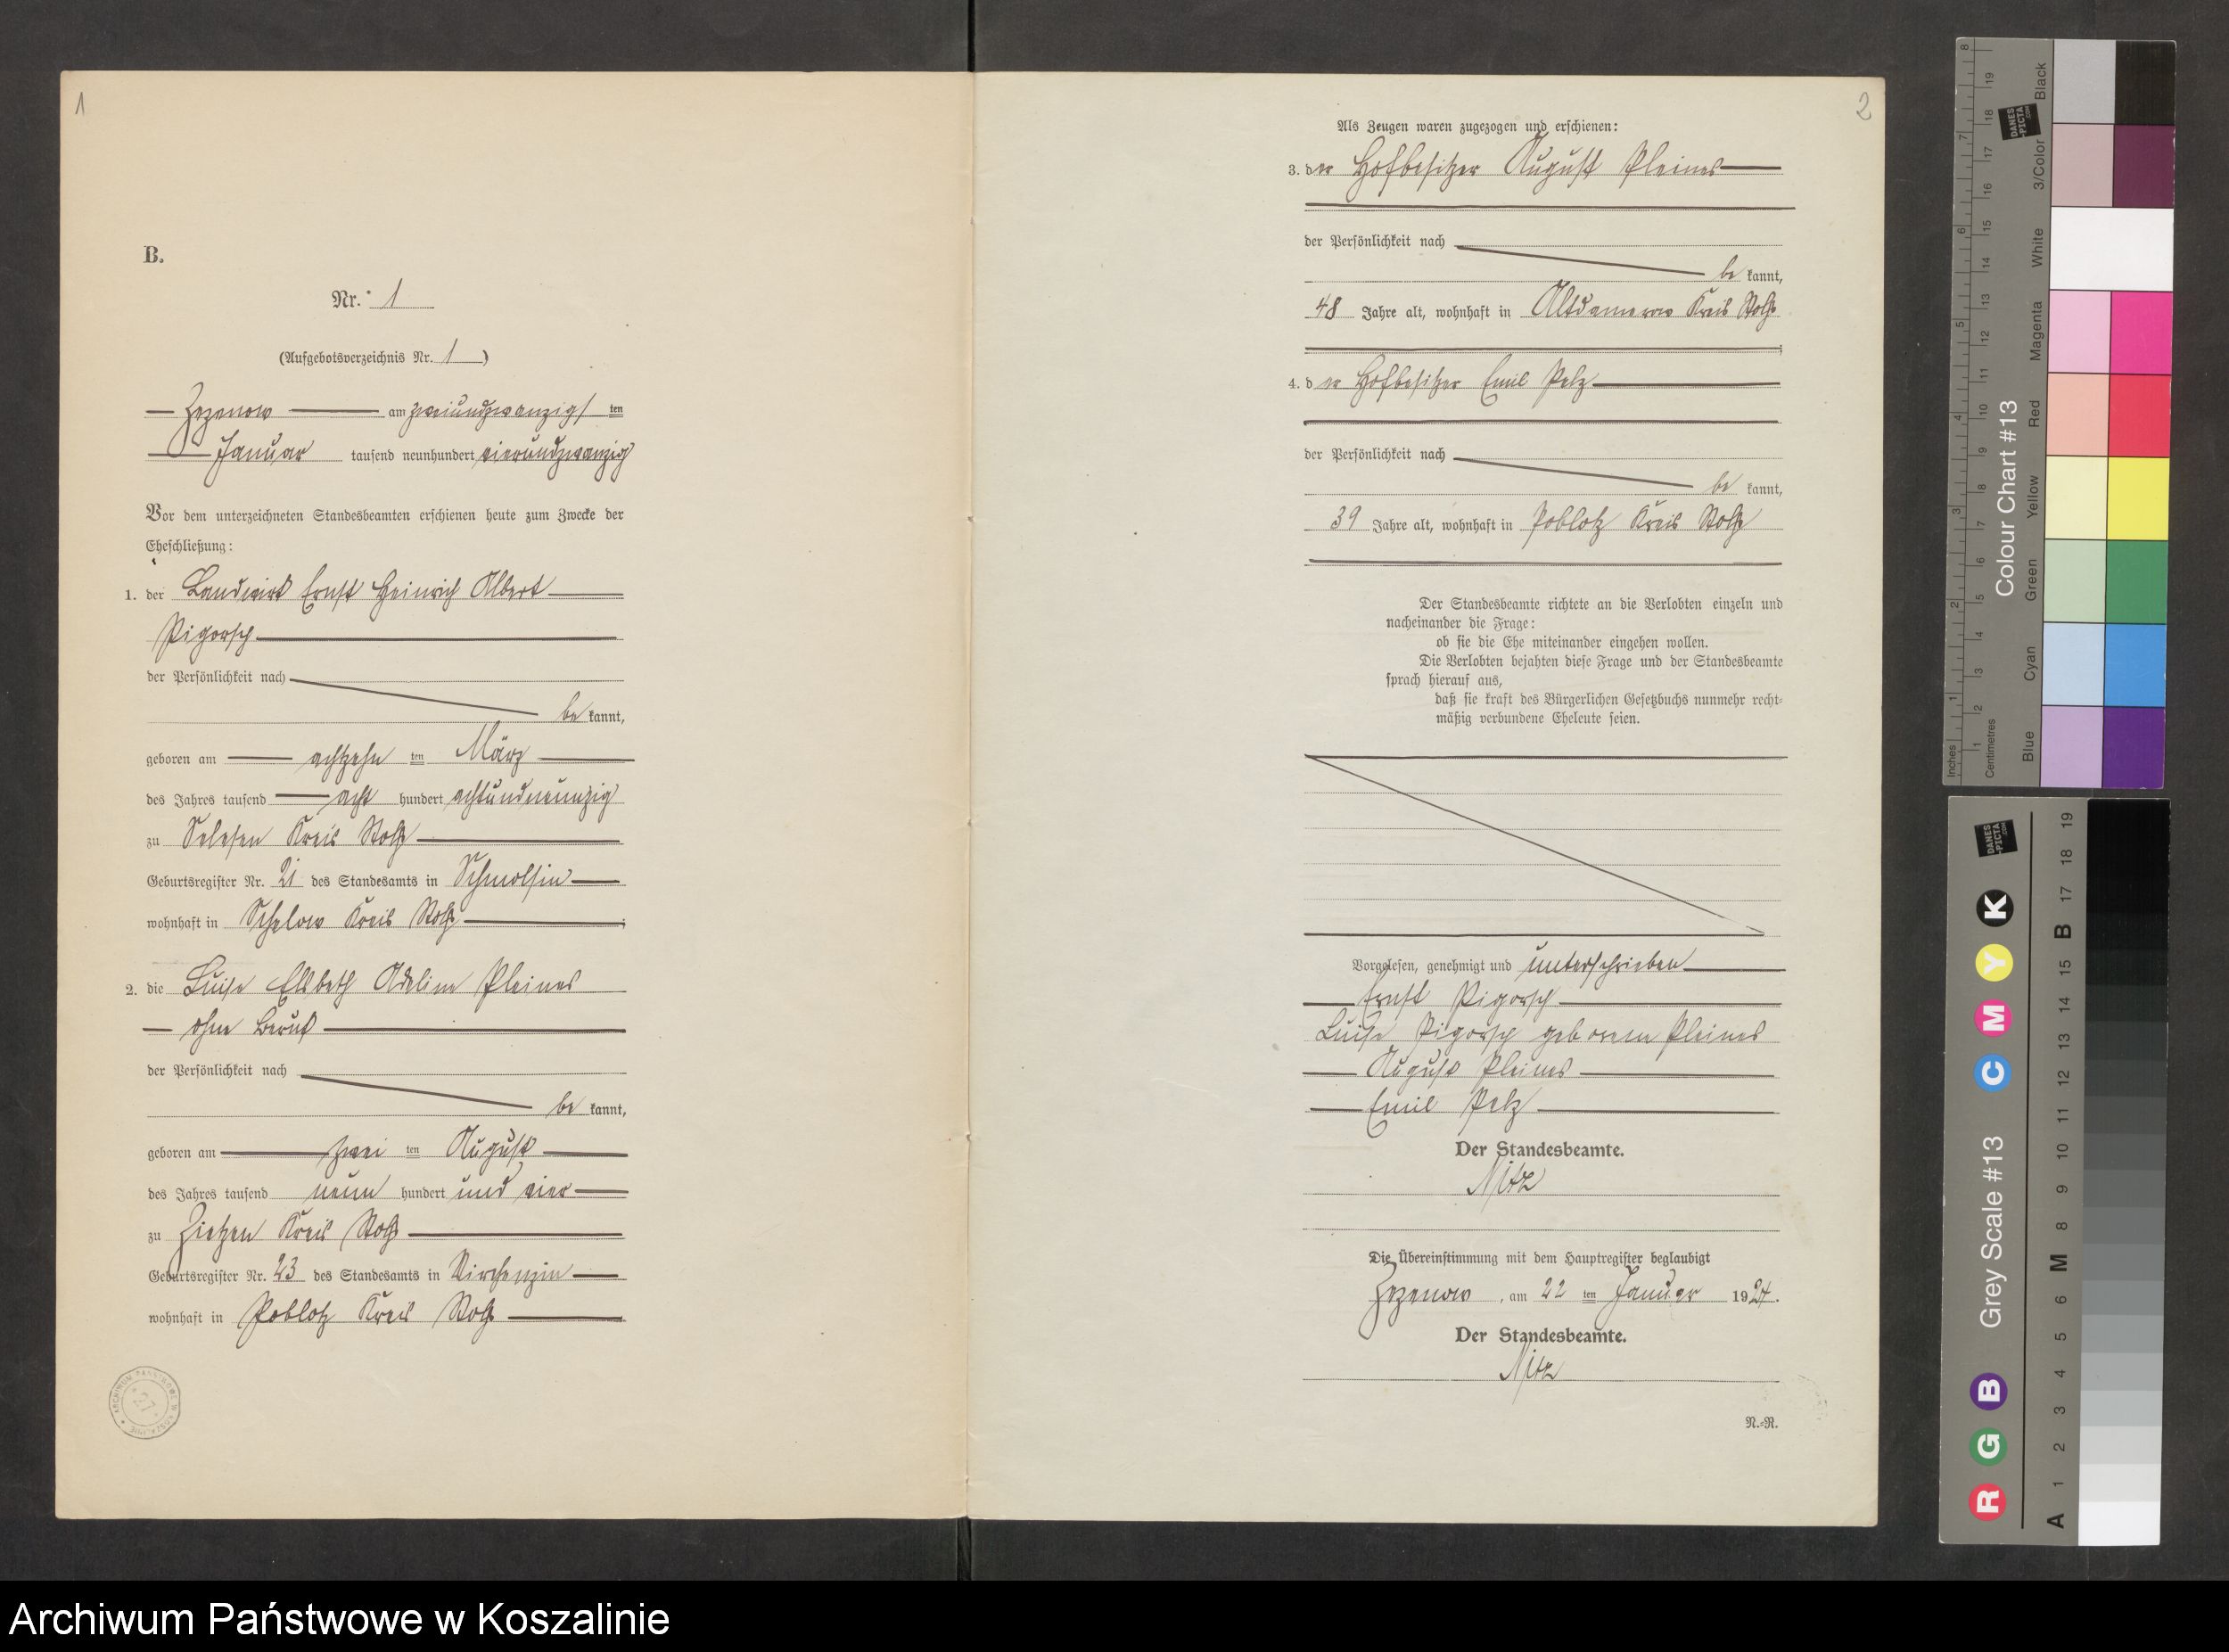 1
B.
Nr. 1
(Aufgebotsverzeichnis Nr. 1)
Zezenow am zweiundzwanzigsten
Januar tausend neunhundert vierundzwanzig
Vor dem unterzeichneten Standesbeamten erschienen heute zum Zwecke der
Eheschließung:
1. der Landwirt Ernst Heinrich Albert
Pigorsch
der Persönlichkeit nach
be kannt,
geboren am achtzehn ten März
des Jahres tausend acht hundert achtundneunzig
zu Selesen Kreis Stolp
Geburtsregister Nr. 21 des Standesamts in Schmolsin
wohnhaft in Schelow Kreis Stolp
2. die Luise Elsbeth Adeline Pleines
ohne Beruf
der Persönlichkeit nach
be kannt,
geboren am zwei ten August
des Jahres tausend neun hundert und vier
zu Zietzen Kreis Stolp
Geburtsregister Nr. 23 des Standesamts in Virchenzin
wohnhaft in Poblotz Kreis Stolp
ARCHIWUM PAŃSTWOWE W
27
2
Als Zeugen waren zugezogen und erschienen:
3. der Hofbesitzer August Pleines
der Persönlichkeit nach
be kannt,
48 Jahre alt, wohnhaft in Altdamerow Kreis Stolp
4. der Hofbesitzer Emil Pelz
der Persönlichkeit nach
be kannt,
39 Jahre alt, wohnhaft in Poblotz Kreis Stolp
Der Standesbeamte richtete an die Verlobten einzeln und
nacheinander die Frage:
ob sie die Ehe miteinander eingehen wollen.
Die Verlobten bejahten diese Frage und der Standesbeamte
sprach hierauf aus,
daß sie kraft des Bürgerlichen Gesetzbuchs nunmehr recht-
mäßig verbundene Eheleute seien.
Vorgelesen, genehmigt und unterschrieben
Ernst Pigorsch
Luise Pigorsch geborene Pleines
August Pleines
Emil Pelz
Der Standesbeamte.
Nitz
Die Übereinstimmung mit dem Hauptregister beglaubigt
Zezenow, am 22 ten Januar 1924.
Der Standesbeamte.
Nitz
N.-R.
Inches 1 2 3 4 5 6 7 8
Centimetres 1 2 3 4 5 6 7 8 9 10 11 12 13 14 15 16 17 18 19
Colour Chart #13
DANES-PICTA.COM
Blue Cyan Green Yellow Red Magenta White 3/Color Black
R G B Grey Scale #13 C M Y K
DANES-PICTA.COM
A 1 2 3 4 5 6 M 8 9 10 11 12 13 14 15 B 17 18 19
Archiwum Państwowe w Koszalinie